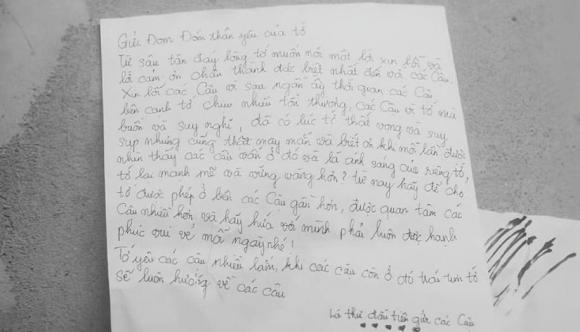 Gửi Đom Đóm thân yêu của tớ
Từ sâu tận đáy lòng tớ muốn nói một lời xin lỗi và
lời cảm ơn chân thành đặc biệt nhất đến với các Cậu.
Xin lỗi các Cậu vì sau ngần ấy thời gian các Cậu
bên cạnh tớ chịu nhiều tổn thương, các Cậu vì tớ mà
buồn và suy nghĩ, đã có lúc tớ thất vọng và suy
sụp nhưng cũng thật may mắn và biết ơn khi mỗi lần được
nhìn thấy các cậu vẫn ở đó và là ánh sáng của riêng tớ,
tớ lại mạnh mẽ và vững vàng hơn? từ nay hãy để cho
tớ được phép ở bên các Cậu gần hơn, được quan tâm các
Cậu nhiều hơn và hãy hứa với mình phải luôn được hạnh
phúc vui vẻ mỗi ngày nhé!
Tớ yêu các cậu nhiều lắm, khi các cậu còn ở đó trái tim tớ
sẽ luôn hướng về các cậu
Lá thư đầu tiên gửi các Cậu